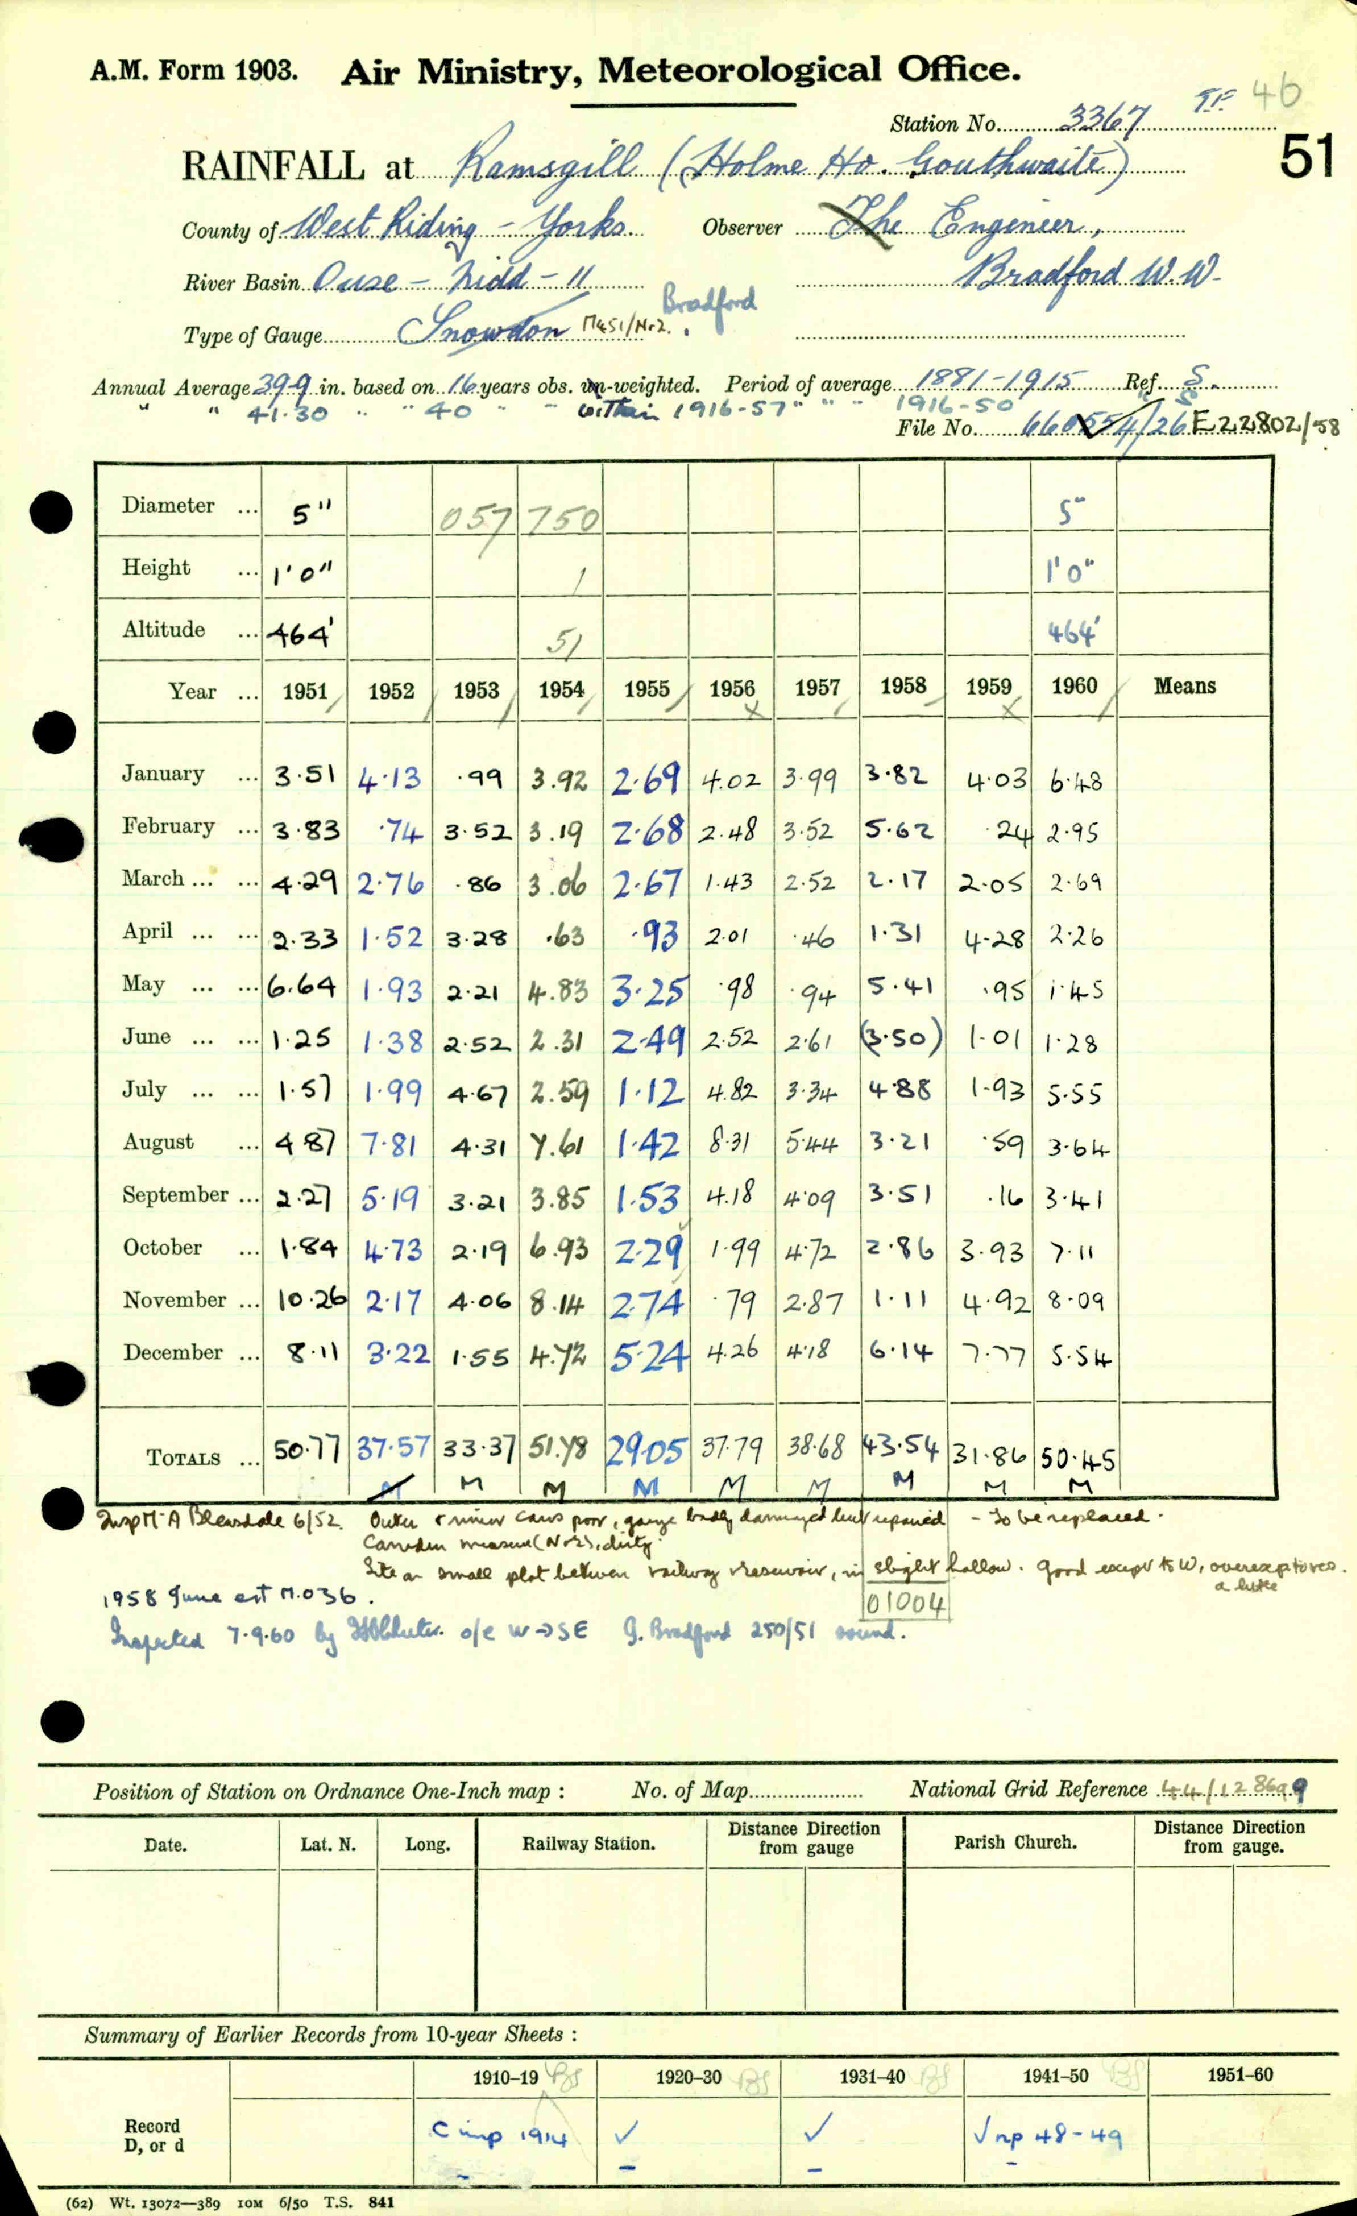 A.M. Form 1903. Air Ministry, Meteorological Office.
46
Station No. 3367
51
RAINFALL at Ramsgill (Holme Ho. Gouthwaite)
County of West Riding - Yorks. Observer The Engineer,
River Basin Ouse - Nidd - 11 Bradford W.W.
Bradford
Type of Gauge Snowdon M451/Nr2.
Annual Average 39.9 in. based on 16 years obs. un-weighted. Period of average 1881-1915 Ref. S.
" " 41.30 " " 40 " " within 1916-57 " " " 1916-50 " S
File No. 660554/26 E22802/58
Diameter ... 5" 057 750 5"
Height ... 1'0" 1 1'0"
Altitude ... 464' 51 464'
Year ... 1951 1952 1953 1954 1955 1956 1957 1958 1959 1960 Means
January ... 3.51 4.13 .99 3.92 2.69 4.02 3.99 3.82 4.03 6.48
February ... 3.83 .74 3.52 3.19 2.68 2.48 3.52 5.62 .24 2.95
March ... ... 4.29 2.76 .86 3.06 2.67 1.43 2.52 2.17 2.05 2.69
April ... ... 2.33 1.52 3.28 .63 .93 2.01 .46 1.31 4.28 2.26
May ... ... 6.64 1.93 2.21 4.83 3.25 .98 .94 5.41 .95 1.45
June ... ... 1.25 1.38 2.52 2.31 2.49 2.52 2.61 (3.50) 1.01 1.28
July ... ... 1.57 1.99 4.67 2.59 1.12 4.82 3.34 4.88 1.93 5.55
August ... 4.87 7.81 4.31 7.61 1.42 8.31 5.44 3.21 .59 3.64
September ... 2.27 5.19 3.21 3.85 1.53 4.18 4.09 3.51 .16 3.41
October ... 1.84 4.73 2.19 6.93 2.29 1.99 4.72 2.86 3.93 7.11
November ... 10.26 2.17 4.06 8.14 2.74 .79 2.87 1.11 4.92 8.09
December ... 8.11 3.22 1.55 4.72 5.24 4.26 4.18 6.14 7.77 5.54
TOTALS ... 50.77 37.57 33.37 51.78 29.05 37.79 38.68 43.54 31.86 50.45
M M M M M M M M M
Insp Mr A Bleasdale 6/52. Outer & inner cans poor, gauge badly damaged but repaired - To be replaced.
Camden measure (Nr2), dirty.
Site on small plot between railway & reservoir, in slight hollow. Good except to W, overexp to res.
a little
1958 June est M.036.
01004
Inspected 7.9.60 by o/e W→SE G. Bradford 250/51 sound.
Position of Station on Ordnance One-Inch map : No. of Map National Grid Reference 44/128699
Date. Lat. N. Long. Railway Station. Distance from Direction gauge Parish Church. Distance from Direction gauge.
Summary of Earlier Records from 10-year Sheets :
1910-19 1920-30 1931-40 1941-50 1951-60
Record D, or d C inp 1914 ✓ ✓ ✓ inp 48-49
- - - -
(62) Wt. 13072—389 10M 6/50 T.S. 841